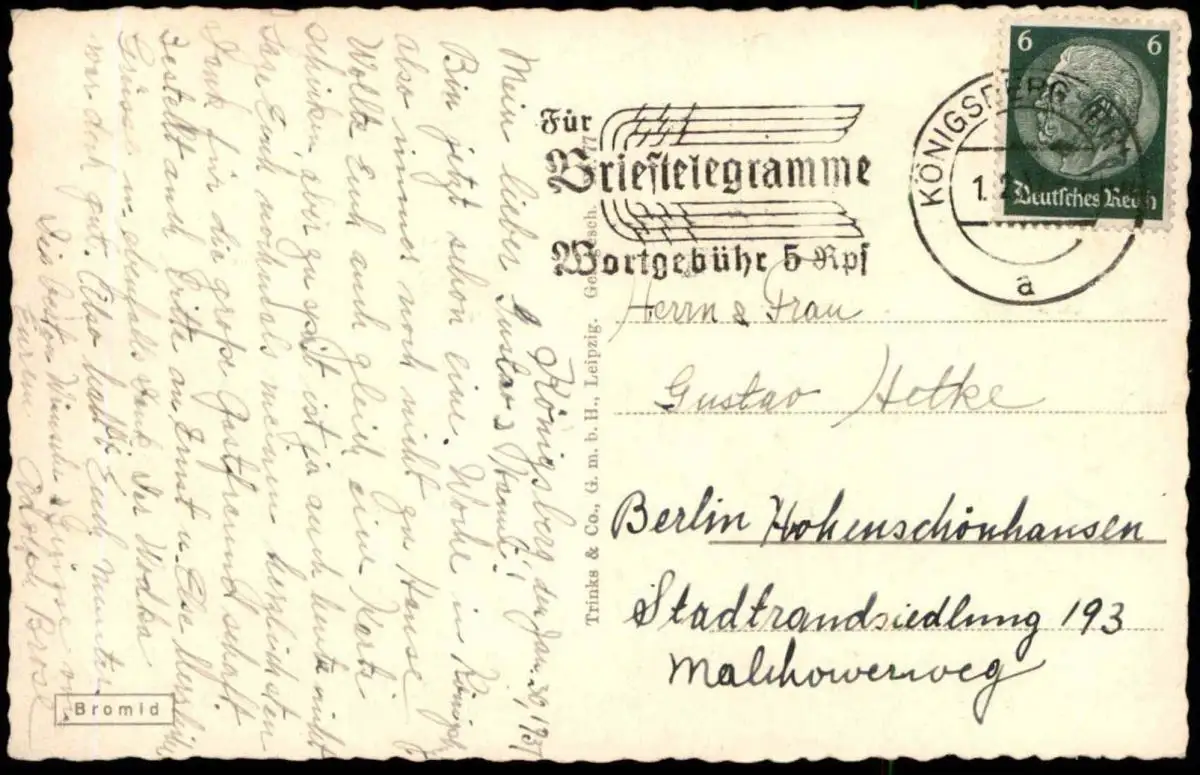 Königsberg den Jan. 30, 1937
Mein lieber Gustav &
Bin jetzt schon eine Woche in Königsb.
also immer noch nicht zu Hause
Wollte Euch auch gleich eine Karte
schicken, aber zu spät ist ja auch heute nicht
Euch nochmals meinen herzlichsten
Dank für die große Gastfreundschaft.
Bestellt auch bitte an Ernst u. Else
Grüsse u. ebenfalls Dank. Der Wodka
war doch gut. Also haltet Euch munter
Die besten Wünsche & Grüsse von
Eurem
Bromid
Trinks & Co., G. m. b. H., Leipzig.
Für
Brieftelegramme
Wortgebühr 5 Rpf
KÖNIGSBERG
a
6 6
Deutsches Reich
Herrn & Frau
Gustav Hetke
Berlin Hohenschönhausen
Stadtrandsiedlung 193
Malchowerweg